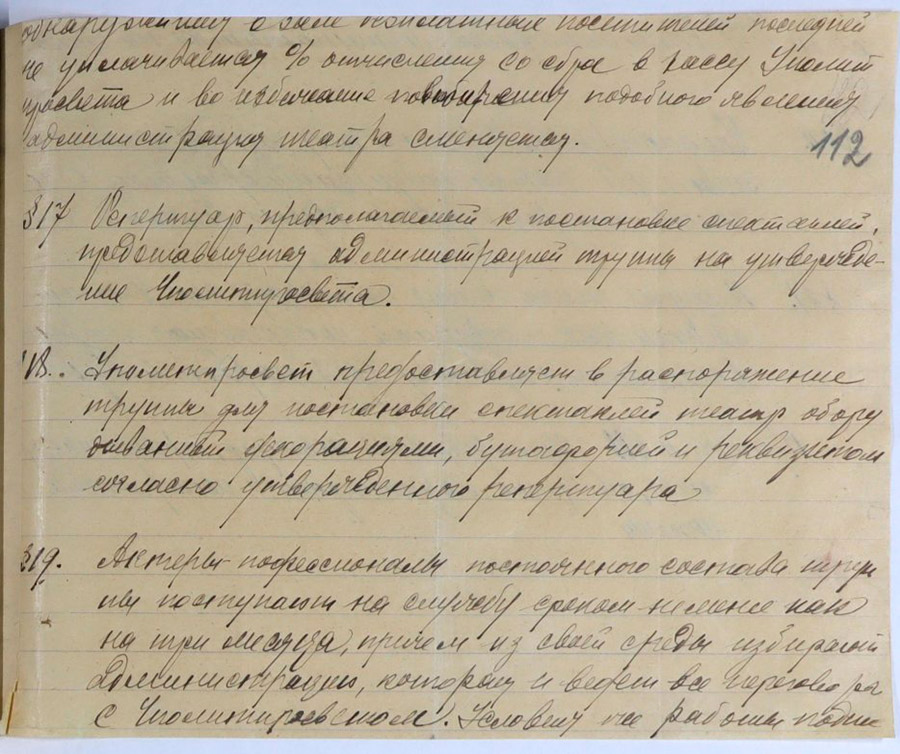 обнаружении в зале безплатных посетителей последней
не уплачивается % отчисления со сбора в кассу Уполит
просвета и во избежание повторения подобного явления
администрация театра сменяется.
112
§17 Репертуар, предполагаемый к постановке спектаклей,
предоставляется администрацией труппы на утвержде-
ние Уполитпросвета.
18. Уполитпросвет предоставляет в распоряжение
труппы для постановки спектаклей театр обору
дованный декорациями, бутафорией и реквизитом
согласно утвержденного репертуара
§19. Актеры-пофессионалы постоянного состава труп
пы поступают на службу сроком не менее как
на три месяца, причем из своей среды избирают
администрацию, которая и ведет все переговоры
с Уполитпросветом. Условия же работы